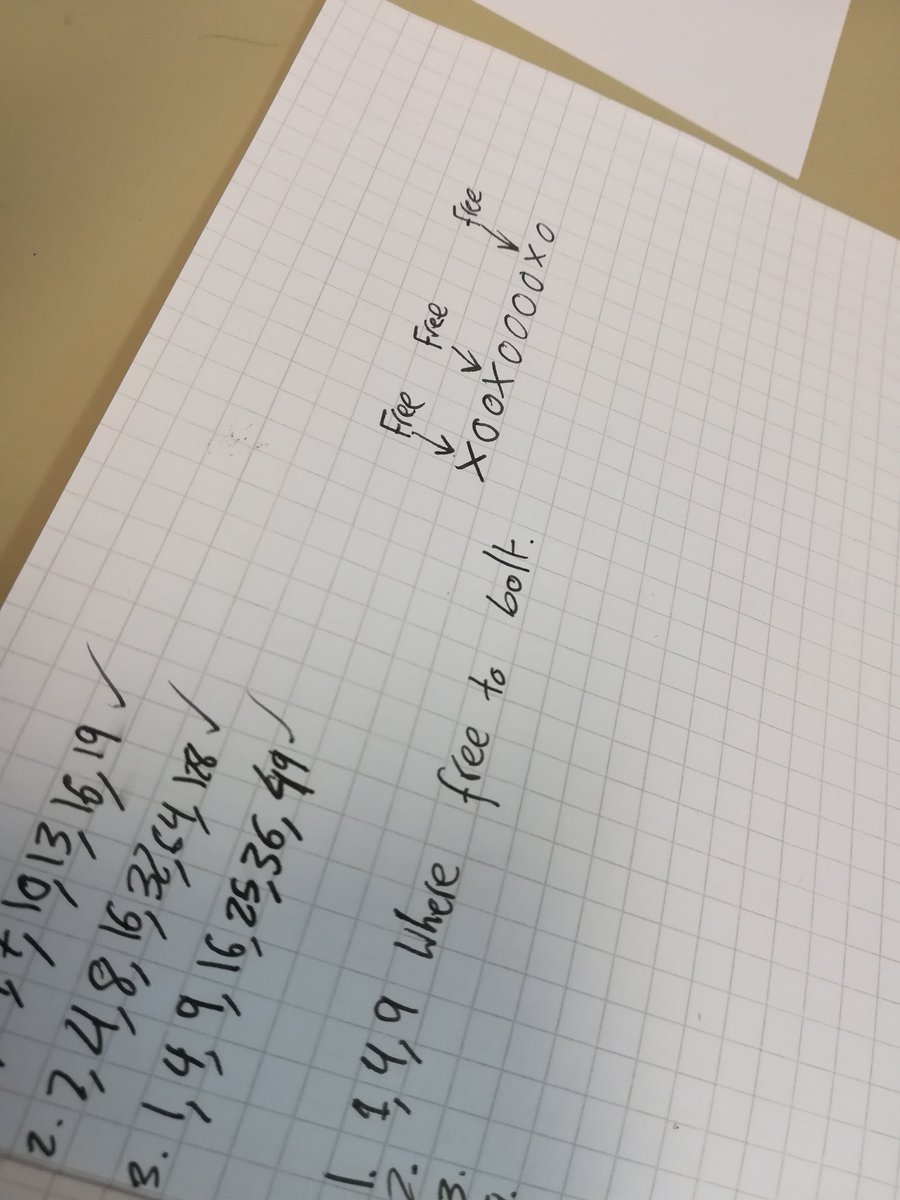 7, 10, 13, 16, 19 ✓
2. 2, 4, 8, 16, 32, 64, 128 ✓
3. 1, 4, 9, 16, 25, 36, 49 ✓
Free Free free
1. 1, 4, 9 Where free to bolt. X00X0000X0
2.
3.